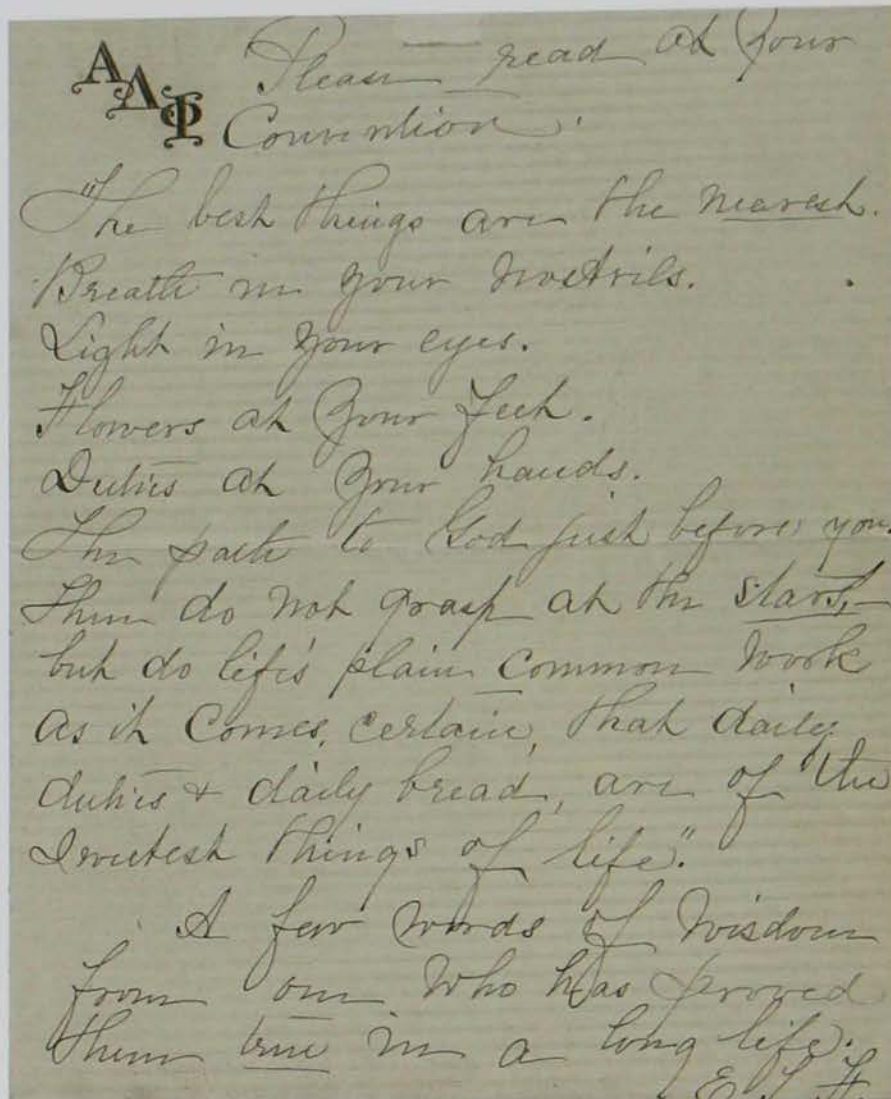 ΑΔΦ
Please read at your
Convention.
"The best things are the nearest.
Breath in your nostrils.
Light in your eyes.
Flowers at your feet.
Duties at your hands.
The path to God just before you.
Then do not grasp at the stars,
but do life's plain common work
as it comes, certain, that daily
duties & daily bread, are of the
sweetest things of life".
A few words of wisdom
from one who has proved
them true in a long life.